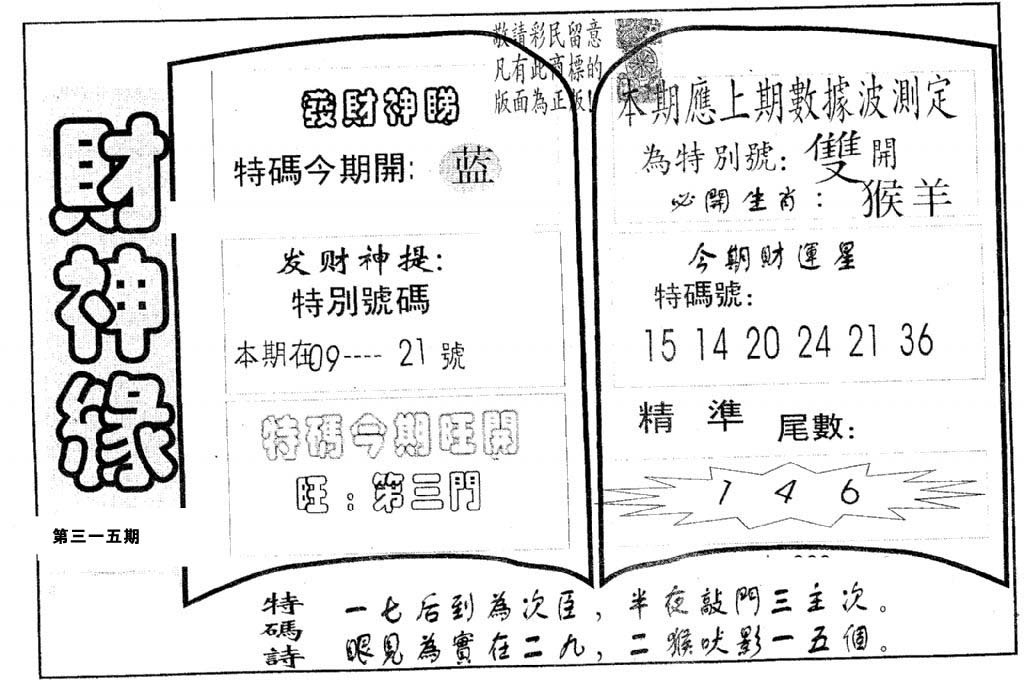 財神緣
第三一五期
敬請彩民留意
凡有此商標的
版面為正版!
發財神睇
特碼今期開: 蓝
发财神提:
特別號碼
本期在09----21號
特碼今期旺開
旺:第三門
本期應上期數據波測定
為特別號: 雙開
必開生肖: 猴羊
今期財運星
特碼號:
15 14 20 24 21 36
精準 尾數:
1 4 6
特碼詩
一七后到為次臣,半夜敲門三主次。
眼見為實在二九,二猴吠影一五個。